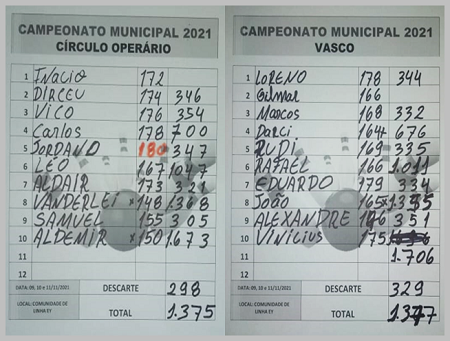 CAMPEONATO MUNICIPAL 2021
CÍRCULO OPERÁRIO
1 INÁCIO 172
2 DIRCEU 174 346
3 VICO 176 354
4 Carlos 178 700
5 JORDANO 180 347
6 LÉO 167 1047
7 ALDAIR 173 321
8 VANDERLEI x 148 1368
9 SAMUEL 155 305
10 ALDEMIR x 150 1.673
11
12
DATA: 09, 10 e 11/11/2021 DESCARTE 298
LOCAL: COMUNIDADE DE LINHA EY TOTAL 1.375
CAMPEONATO MUNICIPAL 2021
VASCO
1 LORENO 178 344
2 Gilmar 166
3 Marcos 168 332
4 Darci 164 676
5 RUDI 169 335
6 RAFAEL 166 1.011
7 EDUARDO 179 334
8 João 165x 1345
9 ALEXANDRE 176 351
10 Vinicius 175
11 1.706
12
DATA: 09, 10 e 11/11/2021 DESCARTE 329
LOCAL: COMUNIDADE DE LINHA EY TOTAL 1.377